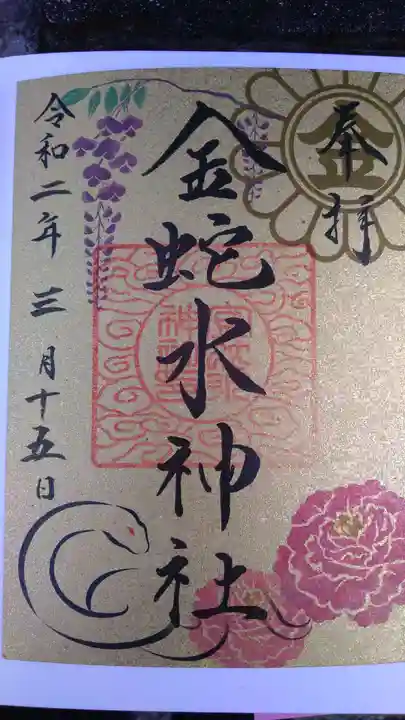 奉拝
金
金蛇水神社
令和二年三月十五日